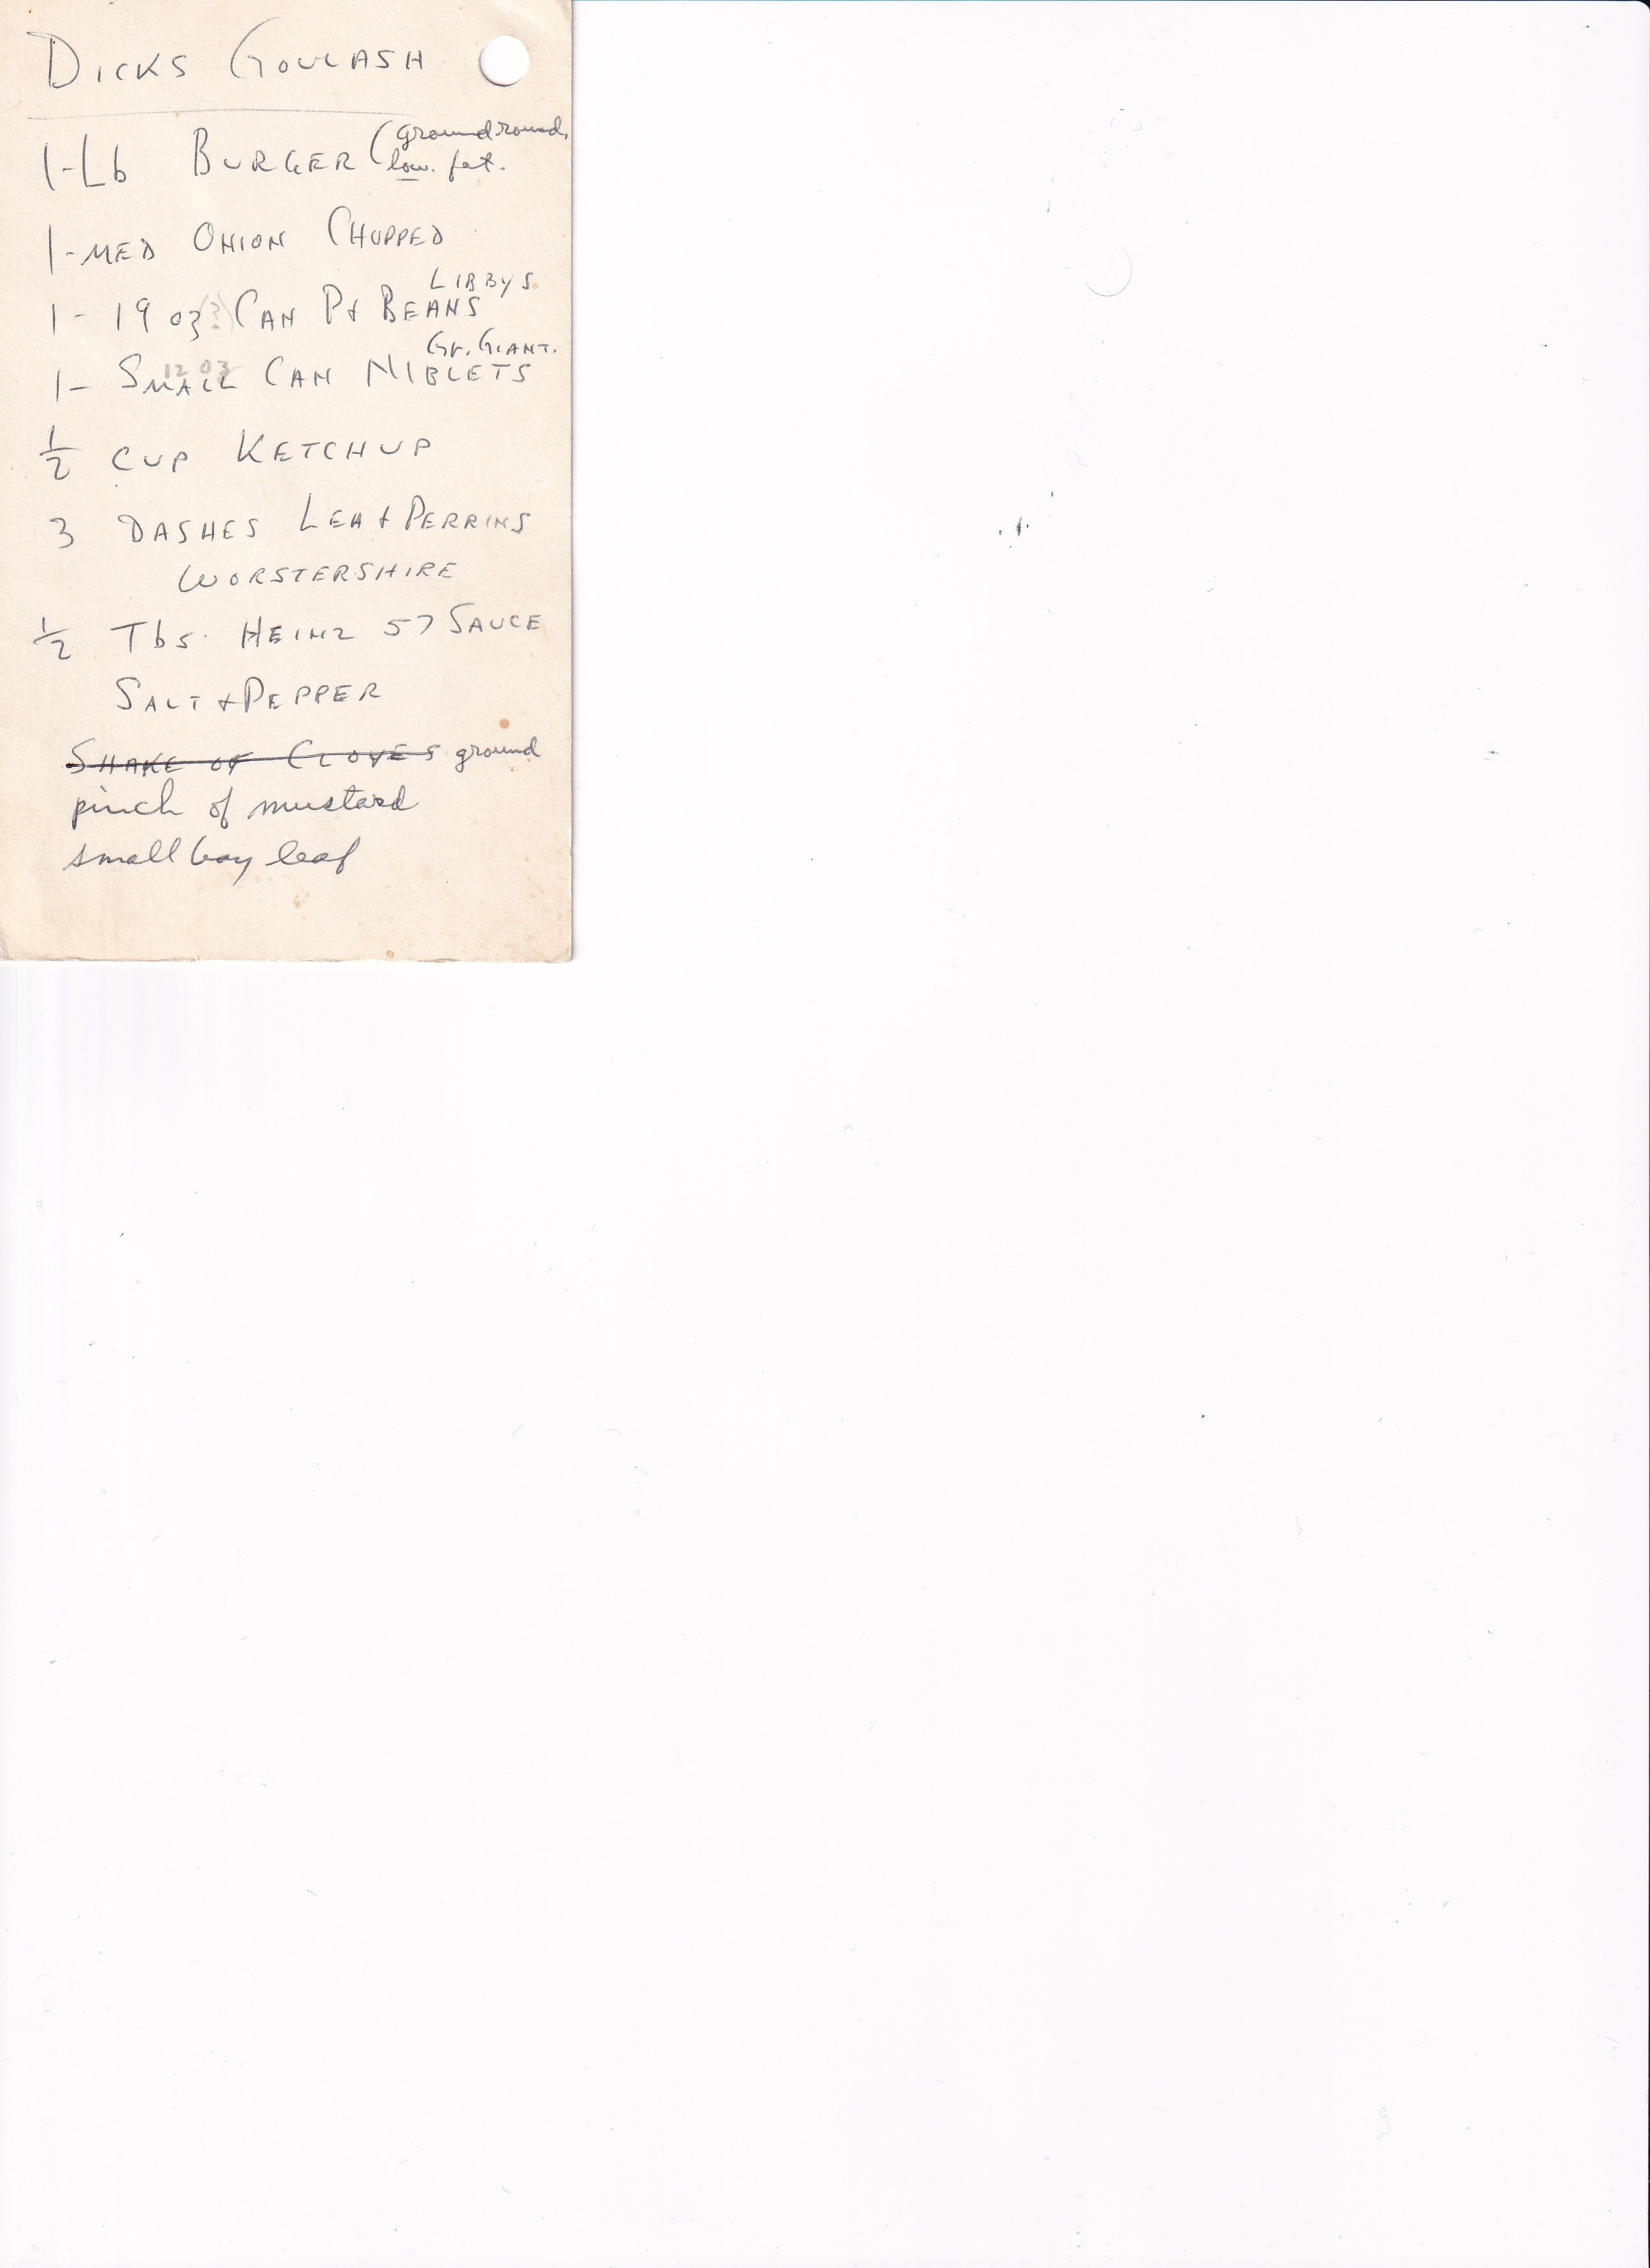 DICKS GOULASH
1-Lb BURGER (ground round,
low fat.
1-MED ONION CHOPPED
LIBBYS
1- 19 oz (?) CAN P+BEANS
Gr. GIANT.
12 oz
1- SMALL CAN NIBLETS
1/2 CUP KETCHUP
3 DASHES LEA+PERRINS
WORSTERSHIRE
1/2 Tbs. HEINZ 57 SAUCE
SALT+PEPPER
SHAKE OF CLOVES ground
pinch of mustard
small bay leaf